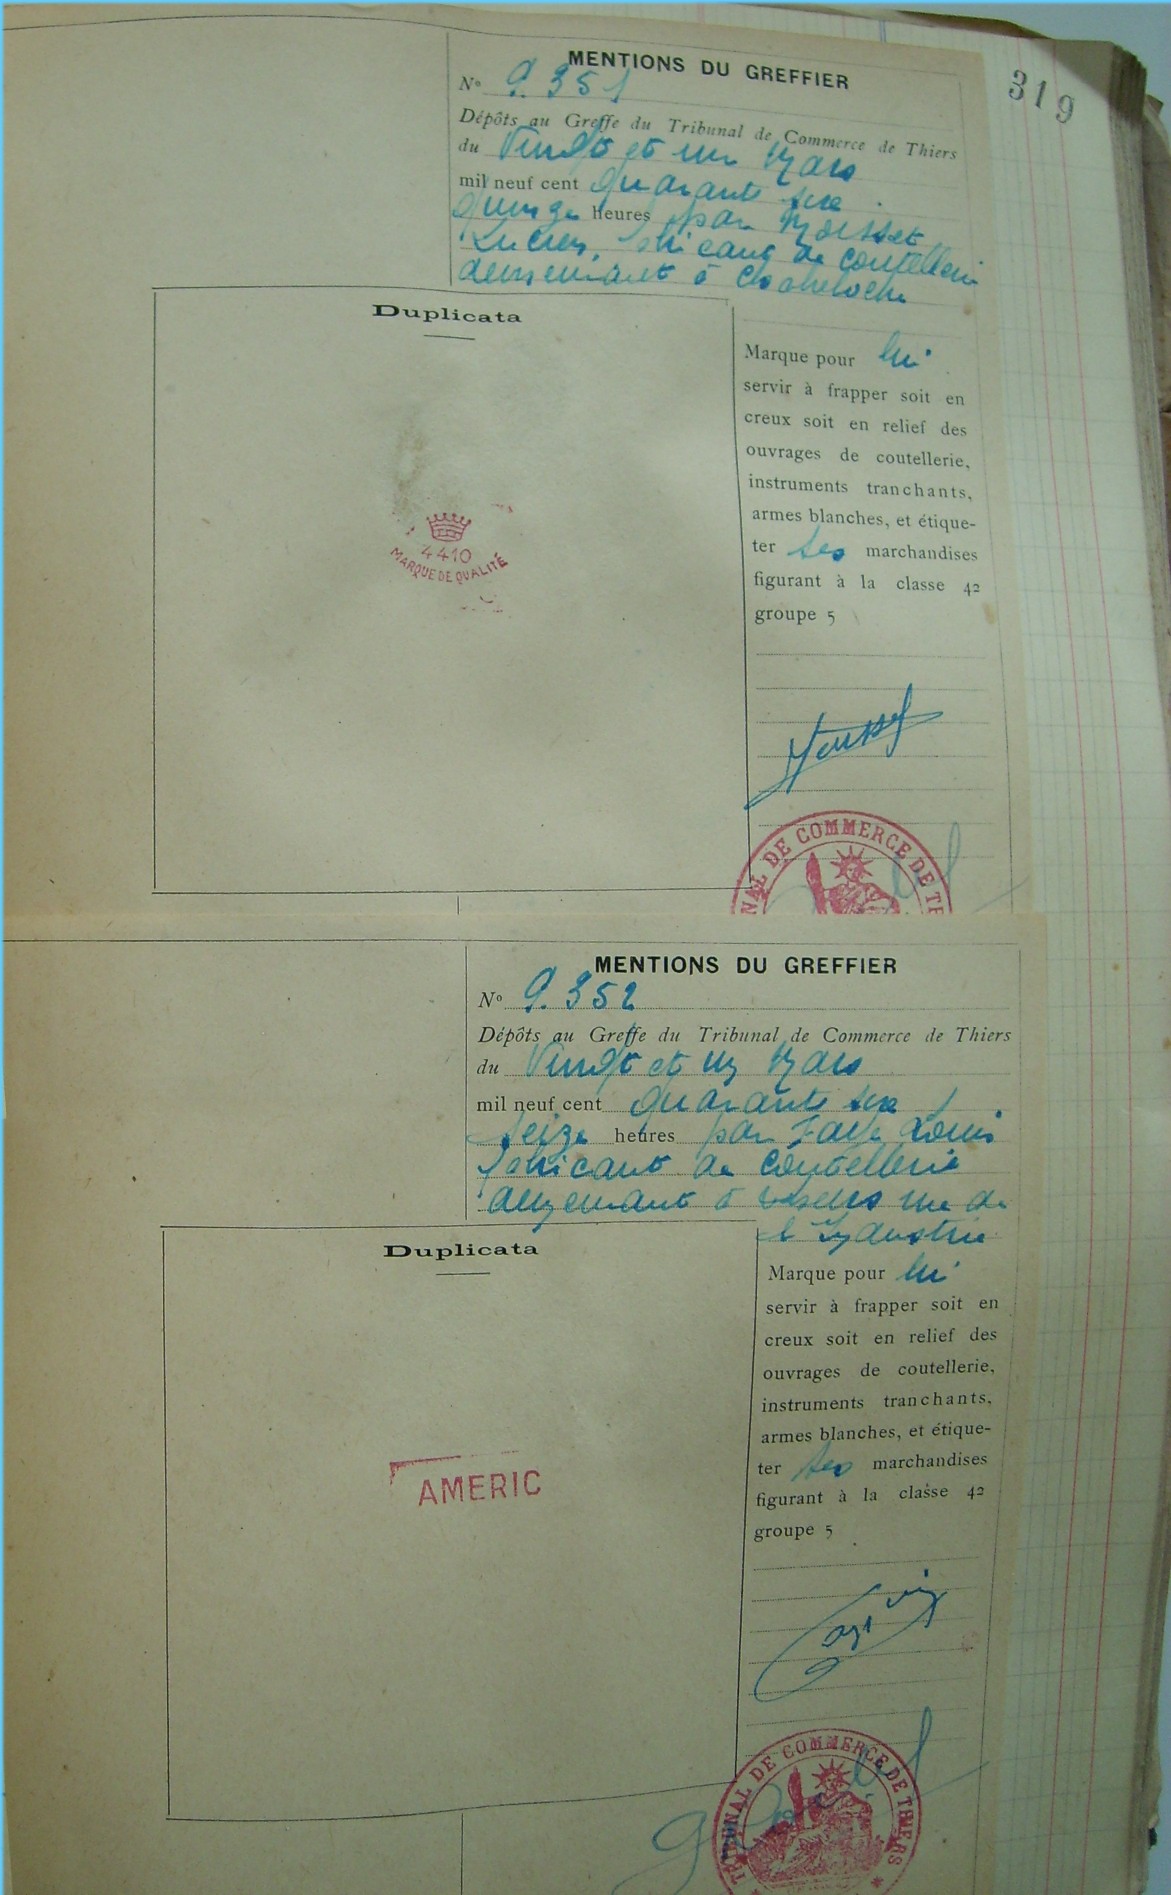 319
MENTIONS DU GREFFIER
No 9.351
Dépôts au Greffe du Tribunal de Commerce de Thiers
du Vingt et un Mars
mil neuf cent quarante six
quinze heures par Mousset
Lucien, fabricant de coutellerie
demeurant à
Duplicata
4410
MARQUE DE QUALITÉ
Marque pour lui
servir à frapper soit en
creux soit en relief des
ouvrages de coutellerie,
instruments tranchants,
armes blanches, et étique-
ter ses marchandises
figurant à la classe 42
groupe 5
NAL DE COMMERCE DE TH
MENTIONS DU GREFFIER
No 9.352
Dépôts au Greffe du Tribunal de Commerce de Thiers
du Vingt et un Mars
mil neuf cent quarante six
seize heures par Faye Louis
fabricant de coutellerie
demeurant à Thiers rue de
l'Industrie
Duplicata
AMERIC
Marque pour lui
servir à frapper soit en
creux soit en relief des
ouvrages de coutellerie,
instruments tranchants,
armes blanches, et étique-
ter ses marchandises
figurant à la classe 42
groupe 5
TRIBUNAL DE COMMERCE DE THIERS